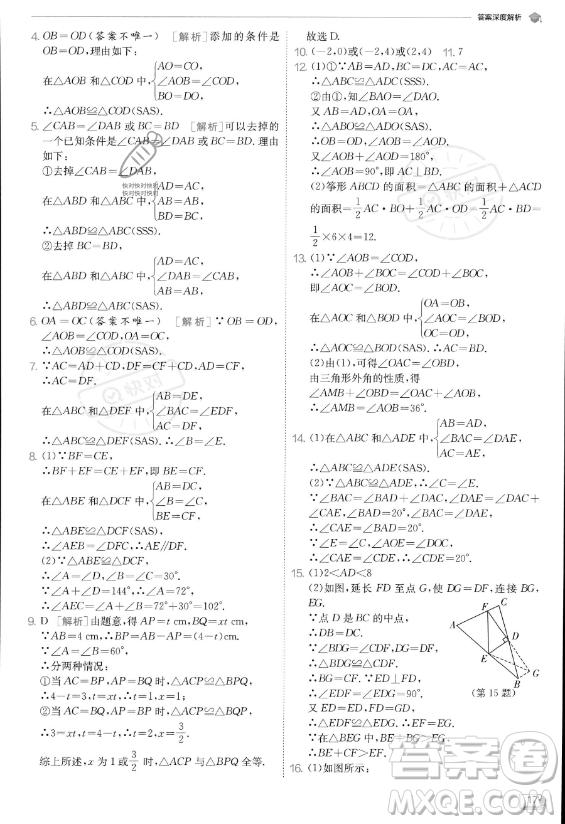 答案深度解析
4. OB=OD(答案不唯一) [解析]添加的条件是
OB=OD,理由如下:
在△AOB和△COD中,
AO=CO,
∠AOB=∠COD,
BO=DO,
∴△AOB≌△COD(SAS).
5. ∠CAB=∠DAB或BC=BD [解析]可以去掉的
一个已知条件是∠CAB=∠DAB或BC=BD.理由
如下:
①去掉∠CAB=∠DAB,
在△DAB和△CAB中,
AD=AC,
AB=AB,
BD=BC,
∴△DAB≌△CAB(SSS).
②去掉BC=BD,
在△DAB和△CAB中,
AD=AC,
∠DAB=∠CAB,
AB=AB,
∴△DAB≌△CAB(SAS).
6. OA=OC(答案不唯一) [解析]∵OB=OD,
∠AOB=∠COD,OA=OC,
∴△AOB≌△COD(SAS).
7. ∵AC=AD+CD,DF=CF+CD,AD=CF,
∴AC=DF.
在△ABC和△DEF中,
AB=DE,
∠BAC=∠EDF,
AC=DF,
∴△ABC≌△DEF(SAS).∴∠B=∠E.
8. (1)∵BF=CE,
∴BF+EF=CE+EF,即BE=CF.
在△ABE和△DCF中,
AB=DC,
∠B=∠C,
BE=CF,
∴△ABE≌△DCF(SAS).
∴∠AEB=∠DFC.∴AE∥DF.
(2)∵△ABE≌△DCF,
∴∠A=∠D,∠B=∠C=30°.
∵∠A+∠D=144°,∴∠A=72°.
∴∠AEC=∠A+∠B=72°+30°=102°.
9. D [解析]由题意,得AP=t cm,BQ=xt cm.
∵AB=4 cm,∴BP=AB-AP=(4-t)cm.
∵∠A=∠B=60°,
∴分两种情况:
①当AC=BP,AP=BQ时,△ACP≌△BPQ,
∴4-t=3,t=xt.∴t=1,x=1.
②当AC=BQ,AP=BP时,△ACP≌△BQP,
∴3=xt,t=4-t.∴t=2,x=3/2.
综上所述,x为1或3/2时,△ACP与△BPQ全等.
故选D.
10. (-2,0)或(-2,4)或(2,4) 11. 7
12. (1)①∵AB=AD,BC=DC,AC=AC,
∴△ABC≌△ADC(SSS).
②由①,知∠BAO=∠DAO.
又AB=AD,OA=OA,
∴△ABO≌△ADO(SAS).
∴∠AOB=∠AOD.
又∠AOB+∠AOD=180°,
∴∠AOB=90°,即AC⊥BD.
(2)筝形ABCD的面积=△ABC的面积+△ACD
的面积=1/2AC·BO+1/2AC·DO=1/2AC·BD=
1/2×6×4=12.
13. (1)∵∠AOB=∠COD,
∴∠AOB+∠BOC=∠COD+∠BOC,
即∠AOC=∠BOD.
在△AOC和△BOD中,
OA=OB,
∠AOC=∠BOD,
OC=OD,
∴△AOC≌△BOD(SAS).
(2)由(1),可得∠OAC=∠OBD.
由三角形外角的性质,得
∠AMB+∠OBD=∠OAC+∠AOB,
∴∠AMB=∠AOB=36°.
14. (1)在△ABC和△ADE中,
AB=AD,
BC=DE,
AC=AE,
∴△ABC≌△ADE(SSS).
(2)∵△ABC≌△ADE,
∴∠BAC=∠DAE,∠C=∠E.
∵∠BAC=∠BAD+∠DAC,∠DAE=∠DAC+
∠CAE,∴∠CAE=∠BAD=20°.
∴∠CDE=∠CAE=20°.
15. (1)2<AD<8
(2)如图,延长FD至点G,使得DG=DF,连接BG,
EG.
∵点D是BC的中点,
∴DB=DC.
∵∠BDG=∠CDF,DG=DF,
∴△BDG≌△CDF(SAS).
∴BG=CF.∵ED⊥FD,
∴∠EDF=∠EDG=90°.
又ED=ED,FD=GD,
∴△EDF≌△EDG(SAS).∴EF=EG.
∵在△BEG中,BE+BG>EG,
∴BE+CF>EF.
16. (1)如图所示:
A
F
C
D
E
B
G
(第15题)
快对
MXQE.COM